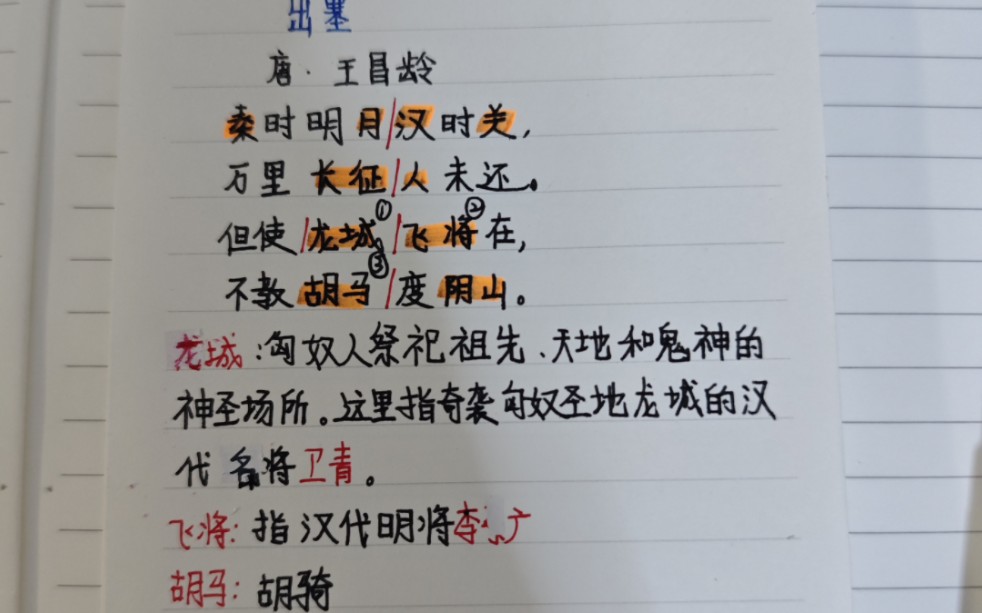 出塞
唐·王昌龄
秦时明月/汉时关,
万里长征/人未还。
但使/龙城①/飞将②在,
不教胡马③/度阴山。
龙城:匈奴人祭祀祖先、天地和鬼神的
神圣场所。这里指奇袭匈奴圣地龙城的汉
代名将卫青。
飞将:指汉代明将李广
胡马:胡骑